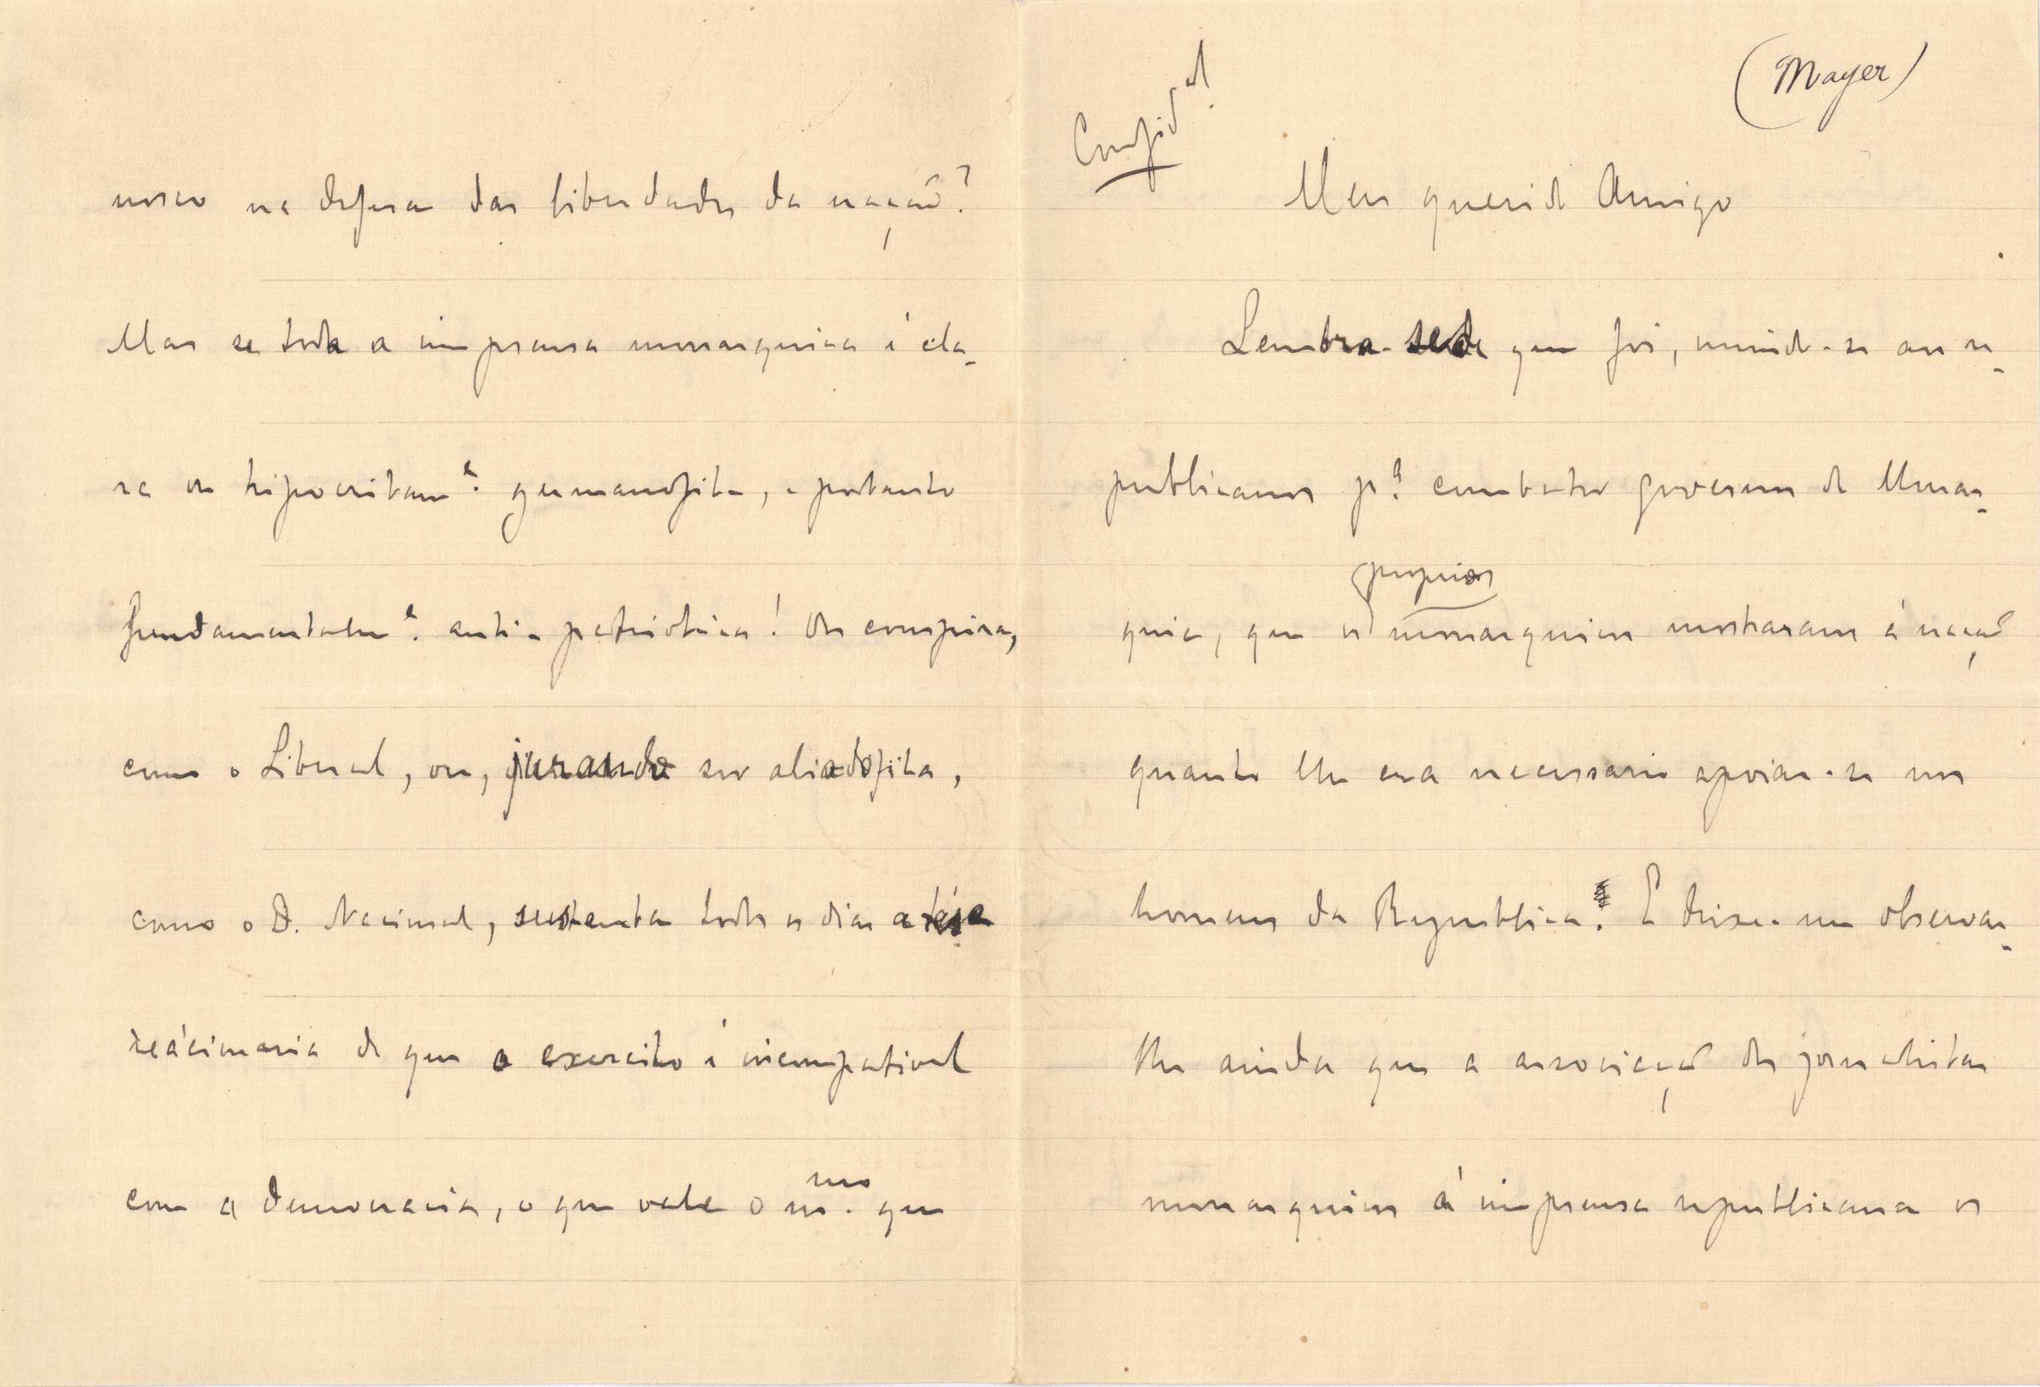 (Mayer)
Confid.al
Meu querido Amigo
Lembra-se de que foi, unindo-se aos re-
publicanos p.a combater governos de Monar-
proprios
quia, que os monarquicos mostraram á nação
quanto lhe era necessario apoiar-se nos
homens da Republica. E deixe-me observar-
lhe ainda que a associação de jornalistas
monarquicos á imprensa republicana os
nosco na defesa das liberdades da nação?
Mas se toda a imprensa monarquica é cla-
ra ou hipocritam.e germanofila, e portanto
fundamentalm.e anti-patriotica! Ou conspira,
como o Liberal, ou, jurando ser aliadofila,
como o D. Nacional, sustenta todos os dias a tése
reácionaria de que o exercito é incompativel
com a democracia, o que vale o m.mo que